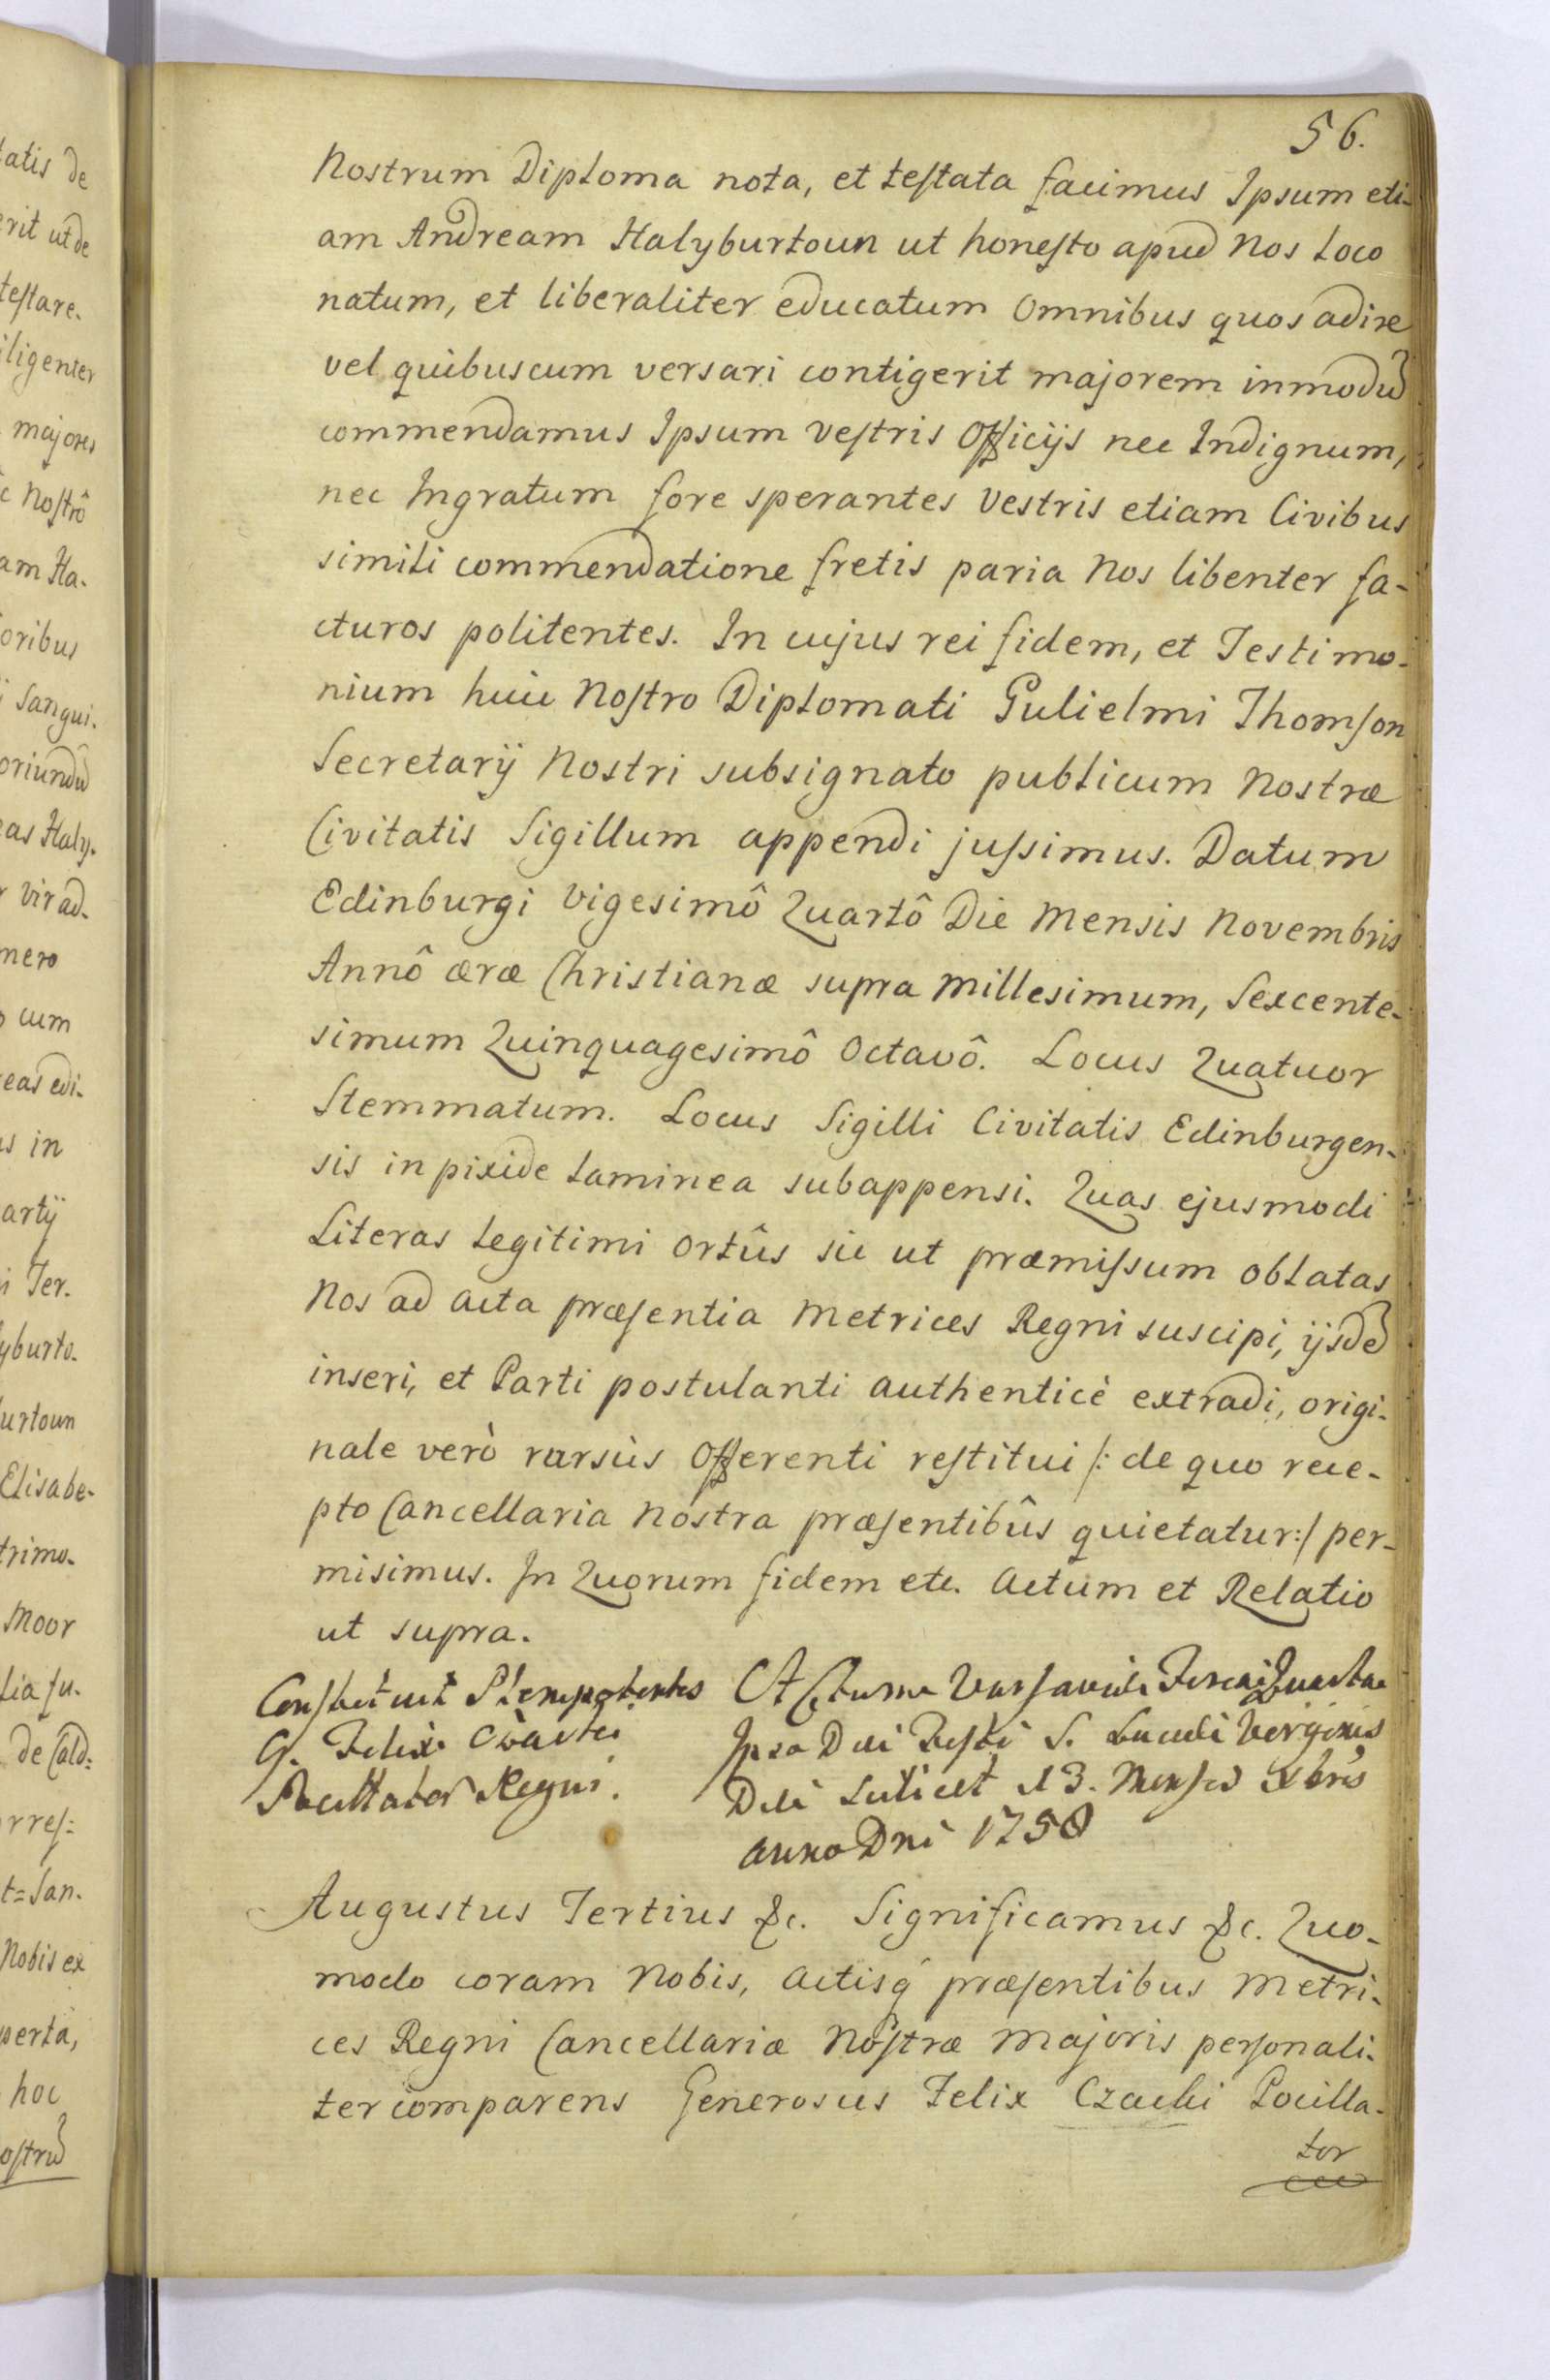 56.
Nostrum Diploma nota, et testata facimus Ipsum eti-
am Andream Halyburtoun ut honesto apud Nos Loco
natum, et liberaliter educatum Omnibus quos adire
vel quibuscum versari contigerit majorem inmodũ
commendamus Ipsum vestris Officijs nec Indignum,
nec Ingratum fore sperantes Vestris etiam Civibus
simili commendatione fretis paria Nos libenter fa-
cturos politentes. In cujus rei fidem, et Testimo-
nium huic Nostro Diplomati Gulielmi Thomson
Secretarÿ Nostri subsignato publicum Nostræ
Civitatis Sigillum appendi jussimus. Datum
Edinburgi Vigesimô Quartô Die Mensis Novembris
Annô æræ Christianæ supra Millesimum, Sexcente-
simum Quinquagesimô Octavô. Locus Quatuor
Stemmatum. Locus Sigilli Civitatis Edinburgen-
sis in pixide Laminea subappensi. Quas ejusmodi
Literas Legitimi Ortûs sic ut præmissum oblatas
Nos ad Acta præsentia Metrices Regni suscipi, ijsdẽ
inseri, et Parti postulanti authenticè extradi, origi-
nale verò rursùs Offerenti restitui /: de quo rece-
pto Cancellaria Nostra præsentibûs quietatur:/ per-
misimus. In Quorum fidem etc. Actum et Relatio
ut supra.
Constituit Plenipotentes
G. Felix Czacki
Pocillator Regni.
Actum Varsaviæ Feria Quarta
Ipso Die Festi S. Luciæ Virginis
Die scilicet 13. Mensis Xbris
anno Dni 1758
Augustus Tertius &c. Significamus &c. Quo-
modo coram Nobis, Actisq́ præsentibus Metri-
ces Regni Cancellariæ Nostræ Majoris personali-
ter comparens Generosus Felix Czacki Pocilla-
tor
tatis de
erit ut de
testare.
iligenter
majores
c Nostrô
am Ha-
oribus
ÿ Sangui-
oriundũ
eas Haly-
r Vir ad-
mero
o cum
reas edi-
us in
artÿ
i Ter.
yburto-
urtoun
Elisabe-
trimo-
Moor
lia fu-
de Cald=
rres=
t= San.
Nobis ex
perta,
hoc
ostrũ